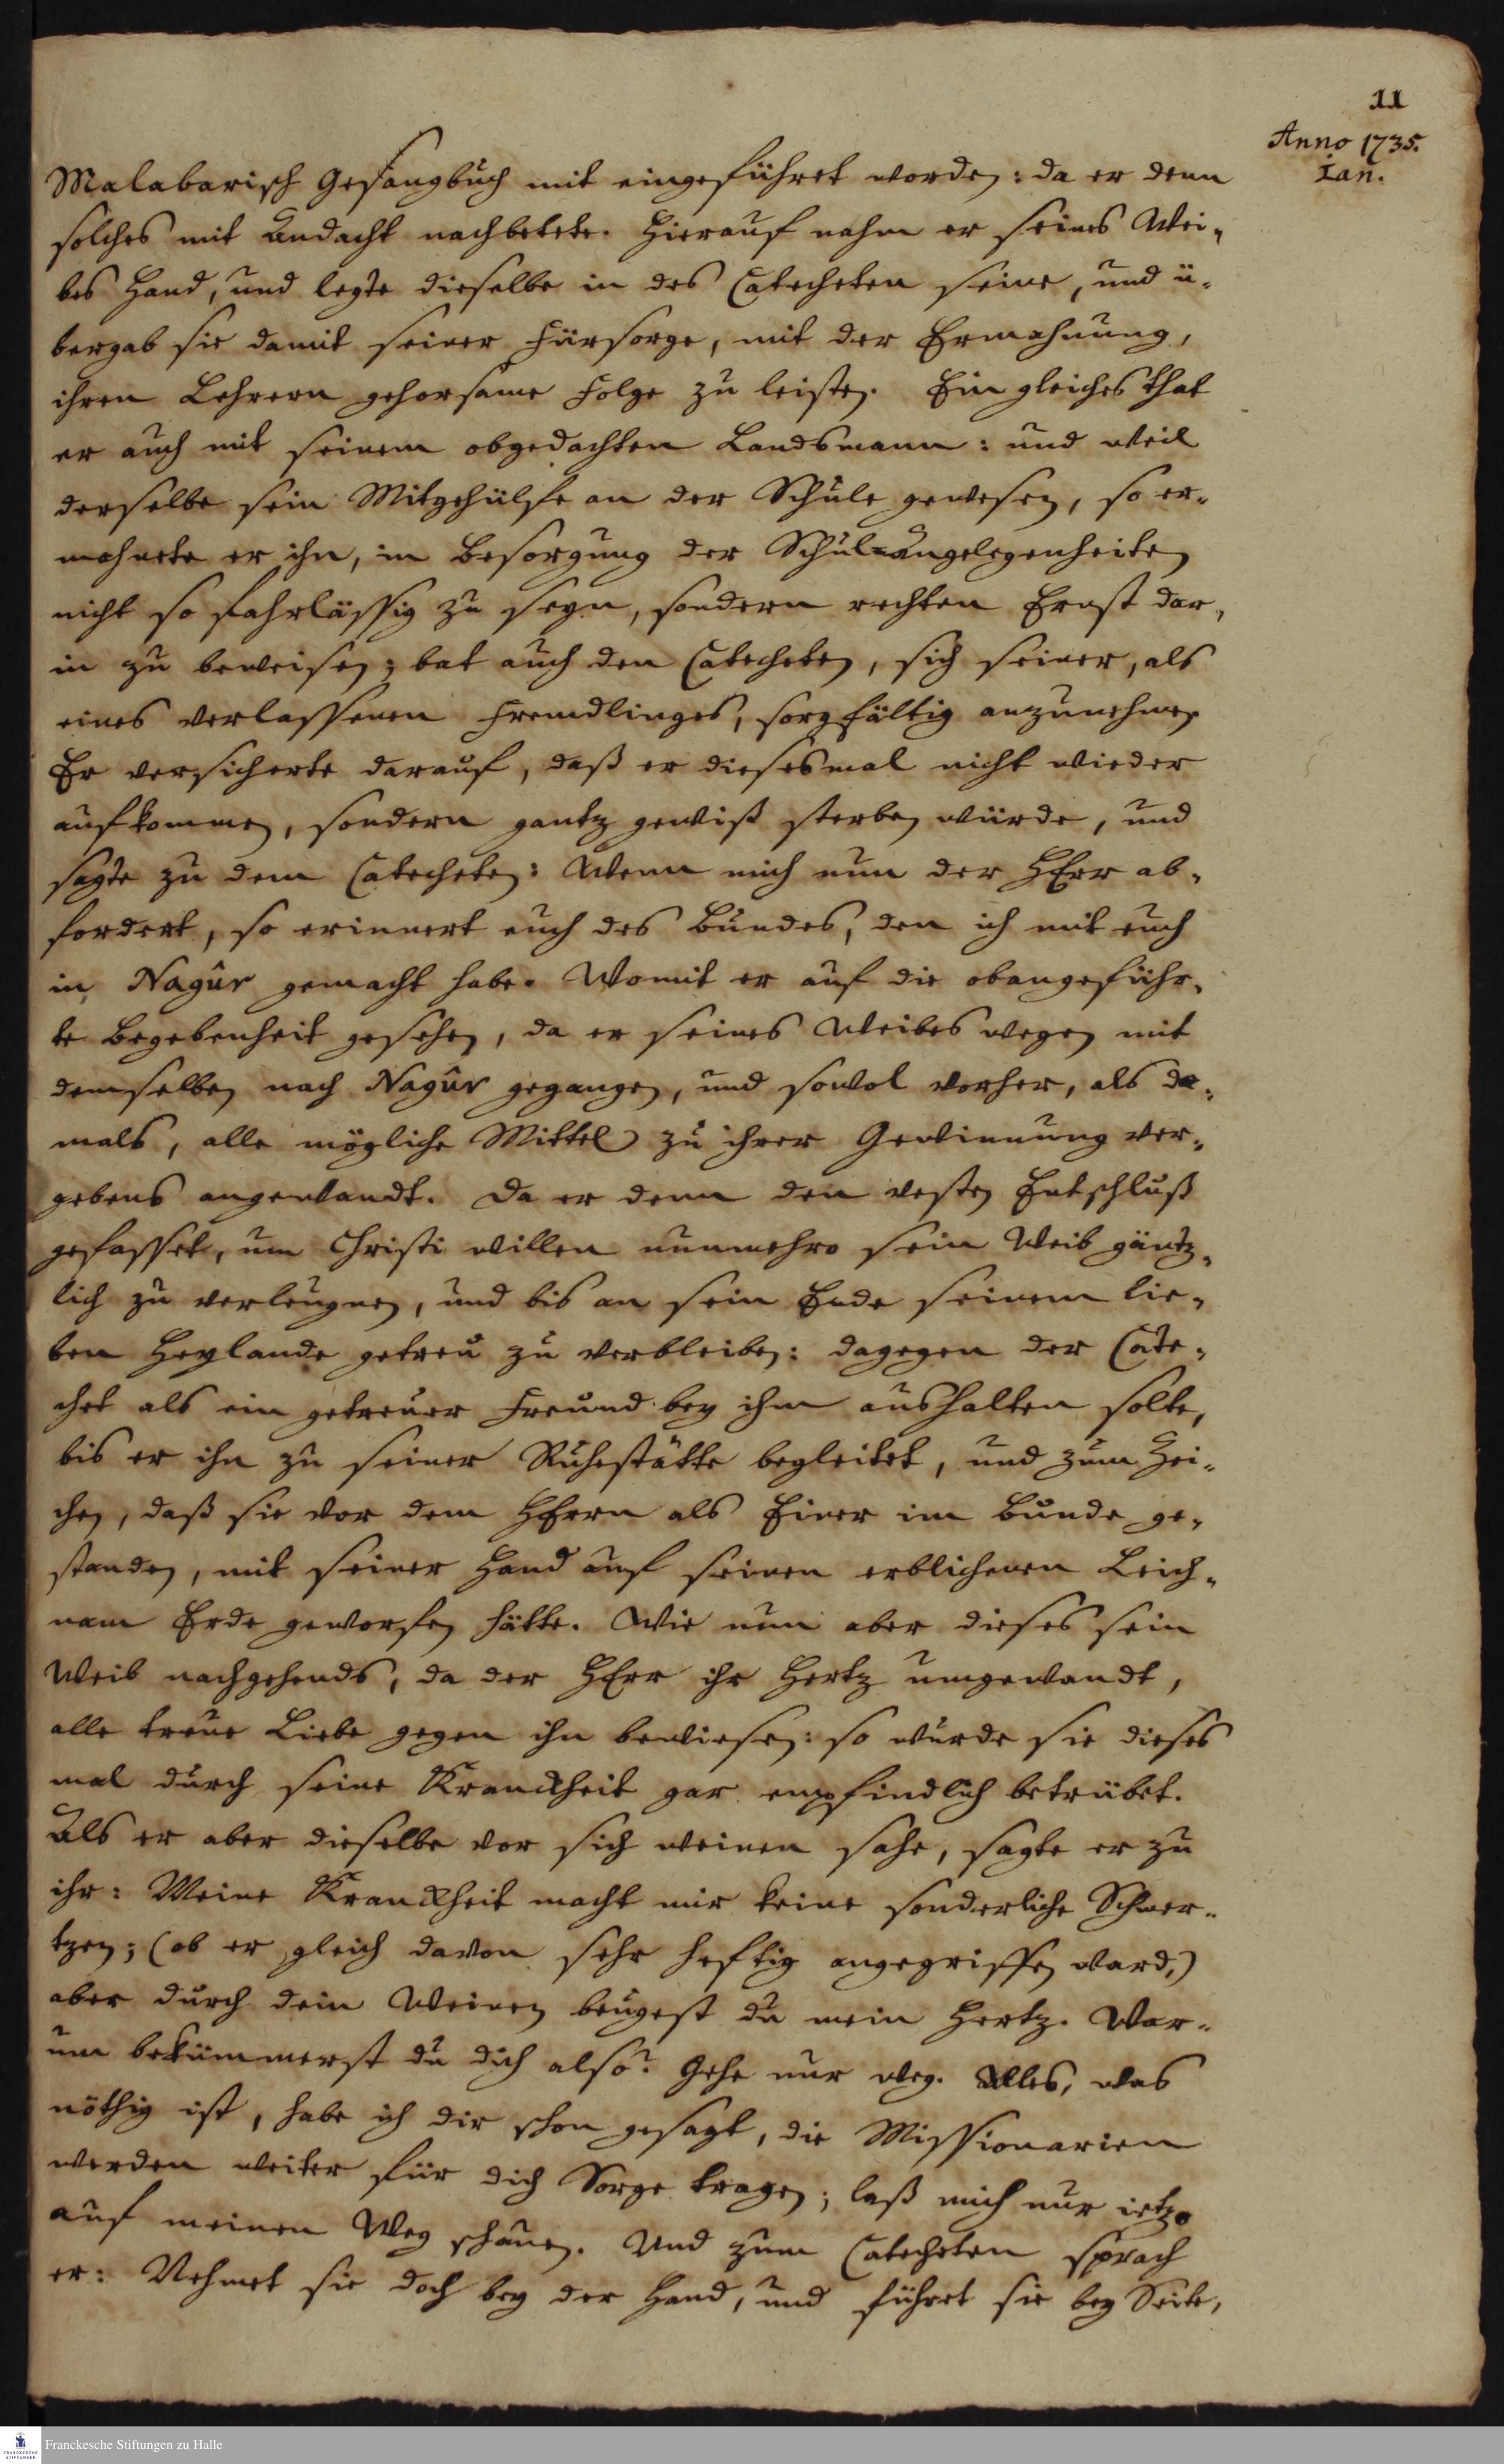 11
Anno 1735.
Ian.
Malabarisch Gesangbuch mit eingeführet worden: da er denn
solches mit Andacht nachbetete. Hierauf nahm er seines Wei-
bes Hand, und legte dieselbe in des Catecheten seine, und ü-
bergab sie damit seiner Fürsorge, mit der Ermahnung,
ihren Lehrern gehorsame Folge zu leisten. Ein gleiches that
er auch mit seinem obgedachten Landsmann: und weil
derselbe sein Mitgehülfe an der Schule gewesen, so er-
mahnete er ihn, in Besorgung der Schul-Angelegenheiten
nicht so fahrlässig zu seyn, sondern rechten Ernst dar-
in zu beweisen; bat auch den Catecheten, sich seiner, als
eines verlassenen Fremdlinges, sorgfältig anzunehmen
Er versicherte darauf, daß er diesesmal nicht wieder
aufkommen, sondern gantz gewiß sterben würde, und
sagte zu dem Catecheten: Wenn mich nun der HErr ab-
fordert, so erinnert euch des Bundes, den ich mit euch
in Nagûr gemacht habe. Womit er auf die obangeführ-
te Begebenheit gesehen, da er seines Weibes wegen mit
demselben nach Nagûr gegangen, und sowol vorher, als da-
mals, alle mögliche Mittel zu ihrer Gewinnung ver-
gebens angewandt. Da er denn den vesten Entschluß
gefasset, um Christi willen nunmehro sein Weib gäntz-
lich zu verleugnen, und bis an sein Ende seinem lie-
ben Heylande getreu zu verbleiben: dagegen der Cate-
chet als ein getreuer Freund bey ihm aushalten solte,
bis er ihn zu seiner Ruhestätte begleitet, und zum Zei-
chen, daß sie vor dem HErrn als Einer im Bunde ge-
standen, mit seiner Hand auf seinen erblichenen Leich-
nam Erde geworfen hätte. Wie nun aber dieses sein
Weib nachgehends, da der HErr ihr Hertz umgewandt,
alle treue Liebe gegen ihn bewiesen: so wurde sie dieses
mal durch seine Kranckheit gar empfindlich betrübet.
Als er aber dieselbe vor sich weinen sahe, sagte er zu
ihr: Meine Kranckheit macht mir keine sonderliche Schmer-
tzen; (ob er gleich davon sehr heftig angegriffen ward,)
aber durch dein Weinen beugest du mein Hertz. War-
um bekümmerst du dich also? Gehe nur weg. Alles, was
nöthig ist, habe ich dir schon gesagt, die Missionarien
werden weiter für dich Sorge tragen; laß mich nur ietzo
auf meinen Weg schauen. Und zum Catecheten sprach
er: Nehmet sie doch bey der Hand, und führet sie bey Seite,
Franckesche Stiftungen zu Halle
FRANCKESCHE
STIFTUNGEN